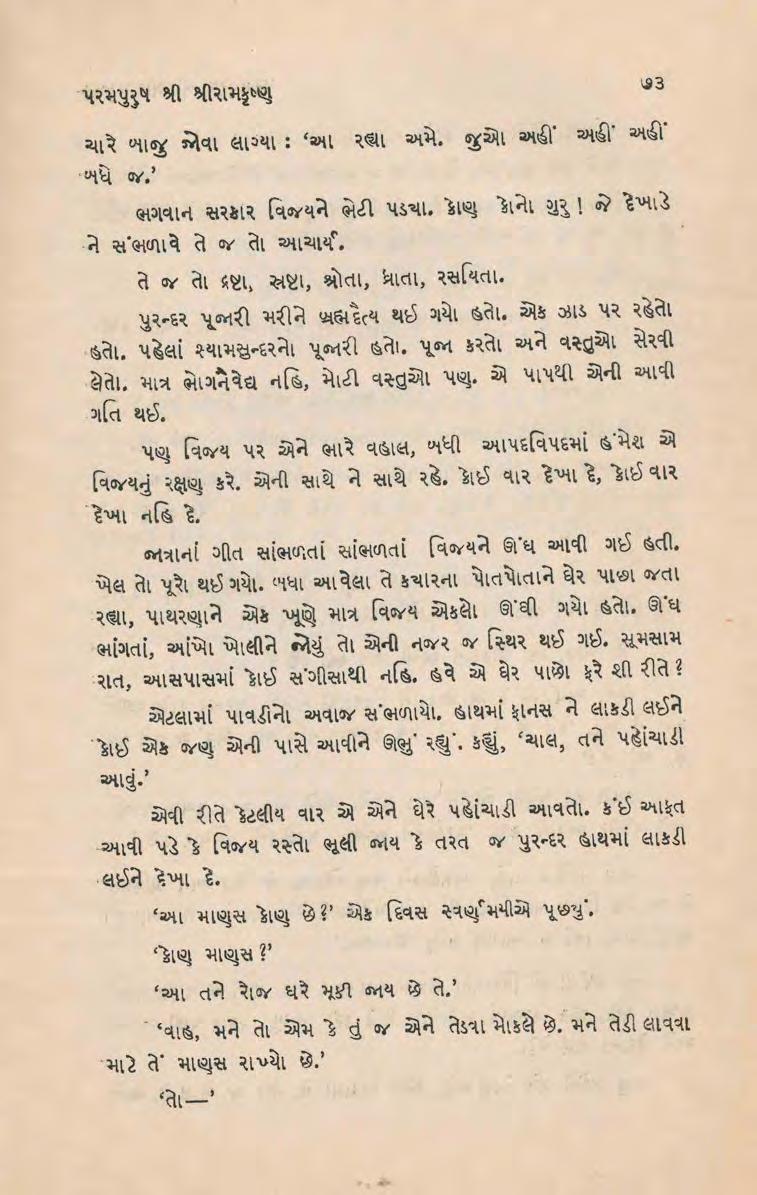 પરમપુરુષ શ્રી શ્રીરામકૃષ્ણ
૭૩
ચારે બાજુ જોવા લાગ્યા : ‘આ રહ્યા અમે. જુઓ અહીં અહીં અહીં
બધે જ.’
ભગવાન સરકાર વિજયને ભેટી પડ્યા. કોણ કોનો ગુરુ ! જે દેખાડે
ને સંભળાવે તે જ તો આચાર્ય.
તે જ તો દ્રષ્ટા, સ્રષ્ટા, શ્રોતા, ધ્રાતા, રસયિતા.
પુરન્દર પૂજારી મરીને બ્રહ્મદૈત્ય થઈ ગયો હતો. એક ઝાડ પર રહેતો
હતો. પહેલાં શ્યામસુન્દરનો પૂજારી હતો. પૂજા કરતો અને વસ્તુઓ સેરવી
લેતો. માત્ર ભોગનૈવેદ્ય નહિ, મોટી વસ્તુઓ પણ. એ પાપથી એની આવી
ગતિ થઈ.
પણ વિજય પર એને ભારે વહાલ, બધી આપદવિપદમાં હંમેશ એ
વિજયનું રક્ષણ કરે. એની સાથે ને સાથે રહે. કોઈ વાર દેખા દે, કોઈ વાર
દેખા નહિ દે.
જાત્રાનાં ગીત સાંભળતાં સાંભળતાં વિજયને ઊંઘ આવી ગઈ હતી.
ખેલ તો પૂરો થઈ ગયો. બધા આવેલા તે કયારના પોતપોતાને ઘેર પાછા જતા
રહ્યા, પાથરણાને એક ખૂણે માત્ર વિજય એકલો ઊંઘી ગયો હતો. ઊંઘ
ભાંગતાં, આંખો ખોલીને જોયું તો એની નજર જ સ્થિર થઈ ગઈ. સૂમસામ
રાત, આસપાસમાં કોઈ સંગીસાથી નહિ. હવે એ ઘેર પાછો ફરે શી રીતે ?
એટલામાં પાવડીનો અવાજ સંભળાયો. હાથમાં ફાનસ ને લાકડી લઈને
કોઈ એક જણ એની પાસે આવીને ઊભું રહ્યું. કહ્યું, ‘ચાલ, તને પહોંચાડી
આવું.’
એવી રીતે કેટલીય વાર એ એને ઘેરે પહોંચાડી આવતો. કંઈ આફત
આવી પડે કે વિજય રસ્તો ભૂલી જાય કે તરત જ પુરન્દર હાથમાં લાકડી
લઈને દેખા દે.
‘આ માણસ કોણ છે?’ એક દિવસ સ્વર્ણમયીએ પૂછયું.
‘કોણ માણસ ?’
‘આ તને રોજ ઘરે મૂકી જાય છે તે.’
‘વાહ, મને તો એમ કે તું જ એને તેડવા મોકલે છે. મને તેડી લાવવા
માટે તેં માણસ રાખ્યો છે.’
‘તો—’